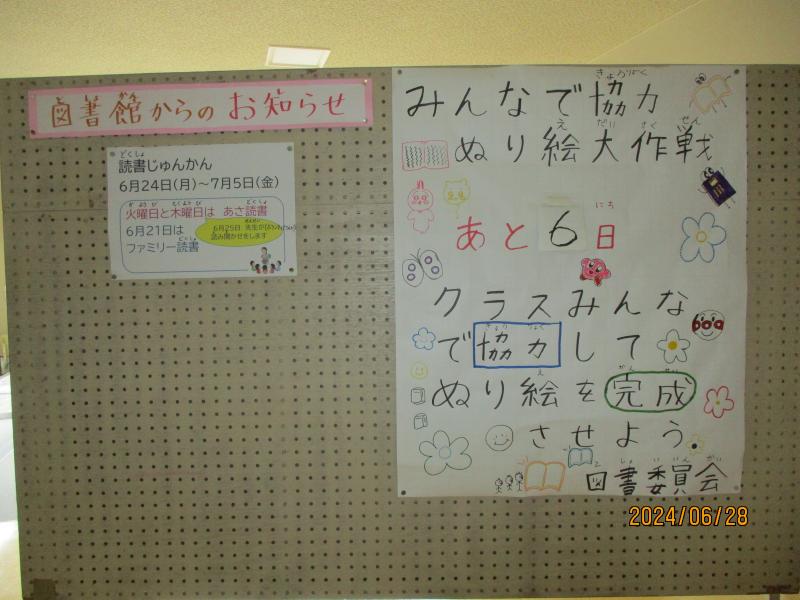 図書館からのお知らせ
どくしょ
読書じゅんかん
6月24日(月)～7月5日(金)
かようび もくようび どくしょ
火曜日と木曜日は あさ読書
6月21日は
ファミリー読書
6月25日 先生が
読み聞かせをします
きょうりょく
みんなで協力
え だい さく せん
ぬり絵大作戦
にち
あと6日
クラスみんな
きょうりょく
で協力して
え かん せい
ぬり絵を完成
させよう
と しょ い いん かい
図書委員会
2024/06/28